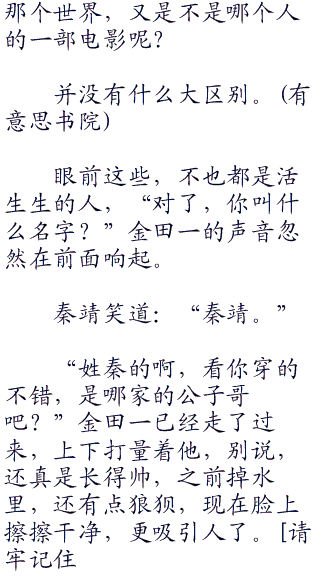 那个世界，又是不是哪个人
的一部电影呢？
并没有什么大区别。(有
意思书院)
眼前这些，不也都是活
生生的人，“对了，你叫什
么名字？”金田一的声音忽
然在前面响起。
秦靖笑道：“秦靖。”
“姓秦的啊，看你穿的
不错，是哪家的公子哥
吧？”金田一已经走了过
来，上下打量着他，别说，
还真是长得帅，之前掉水
里，还有点狼狈，现在脸上
擦擦干净，更吸引人了。[请
牢记住